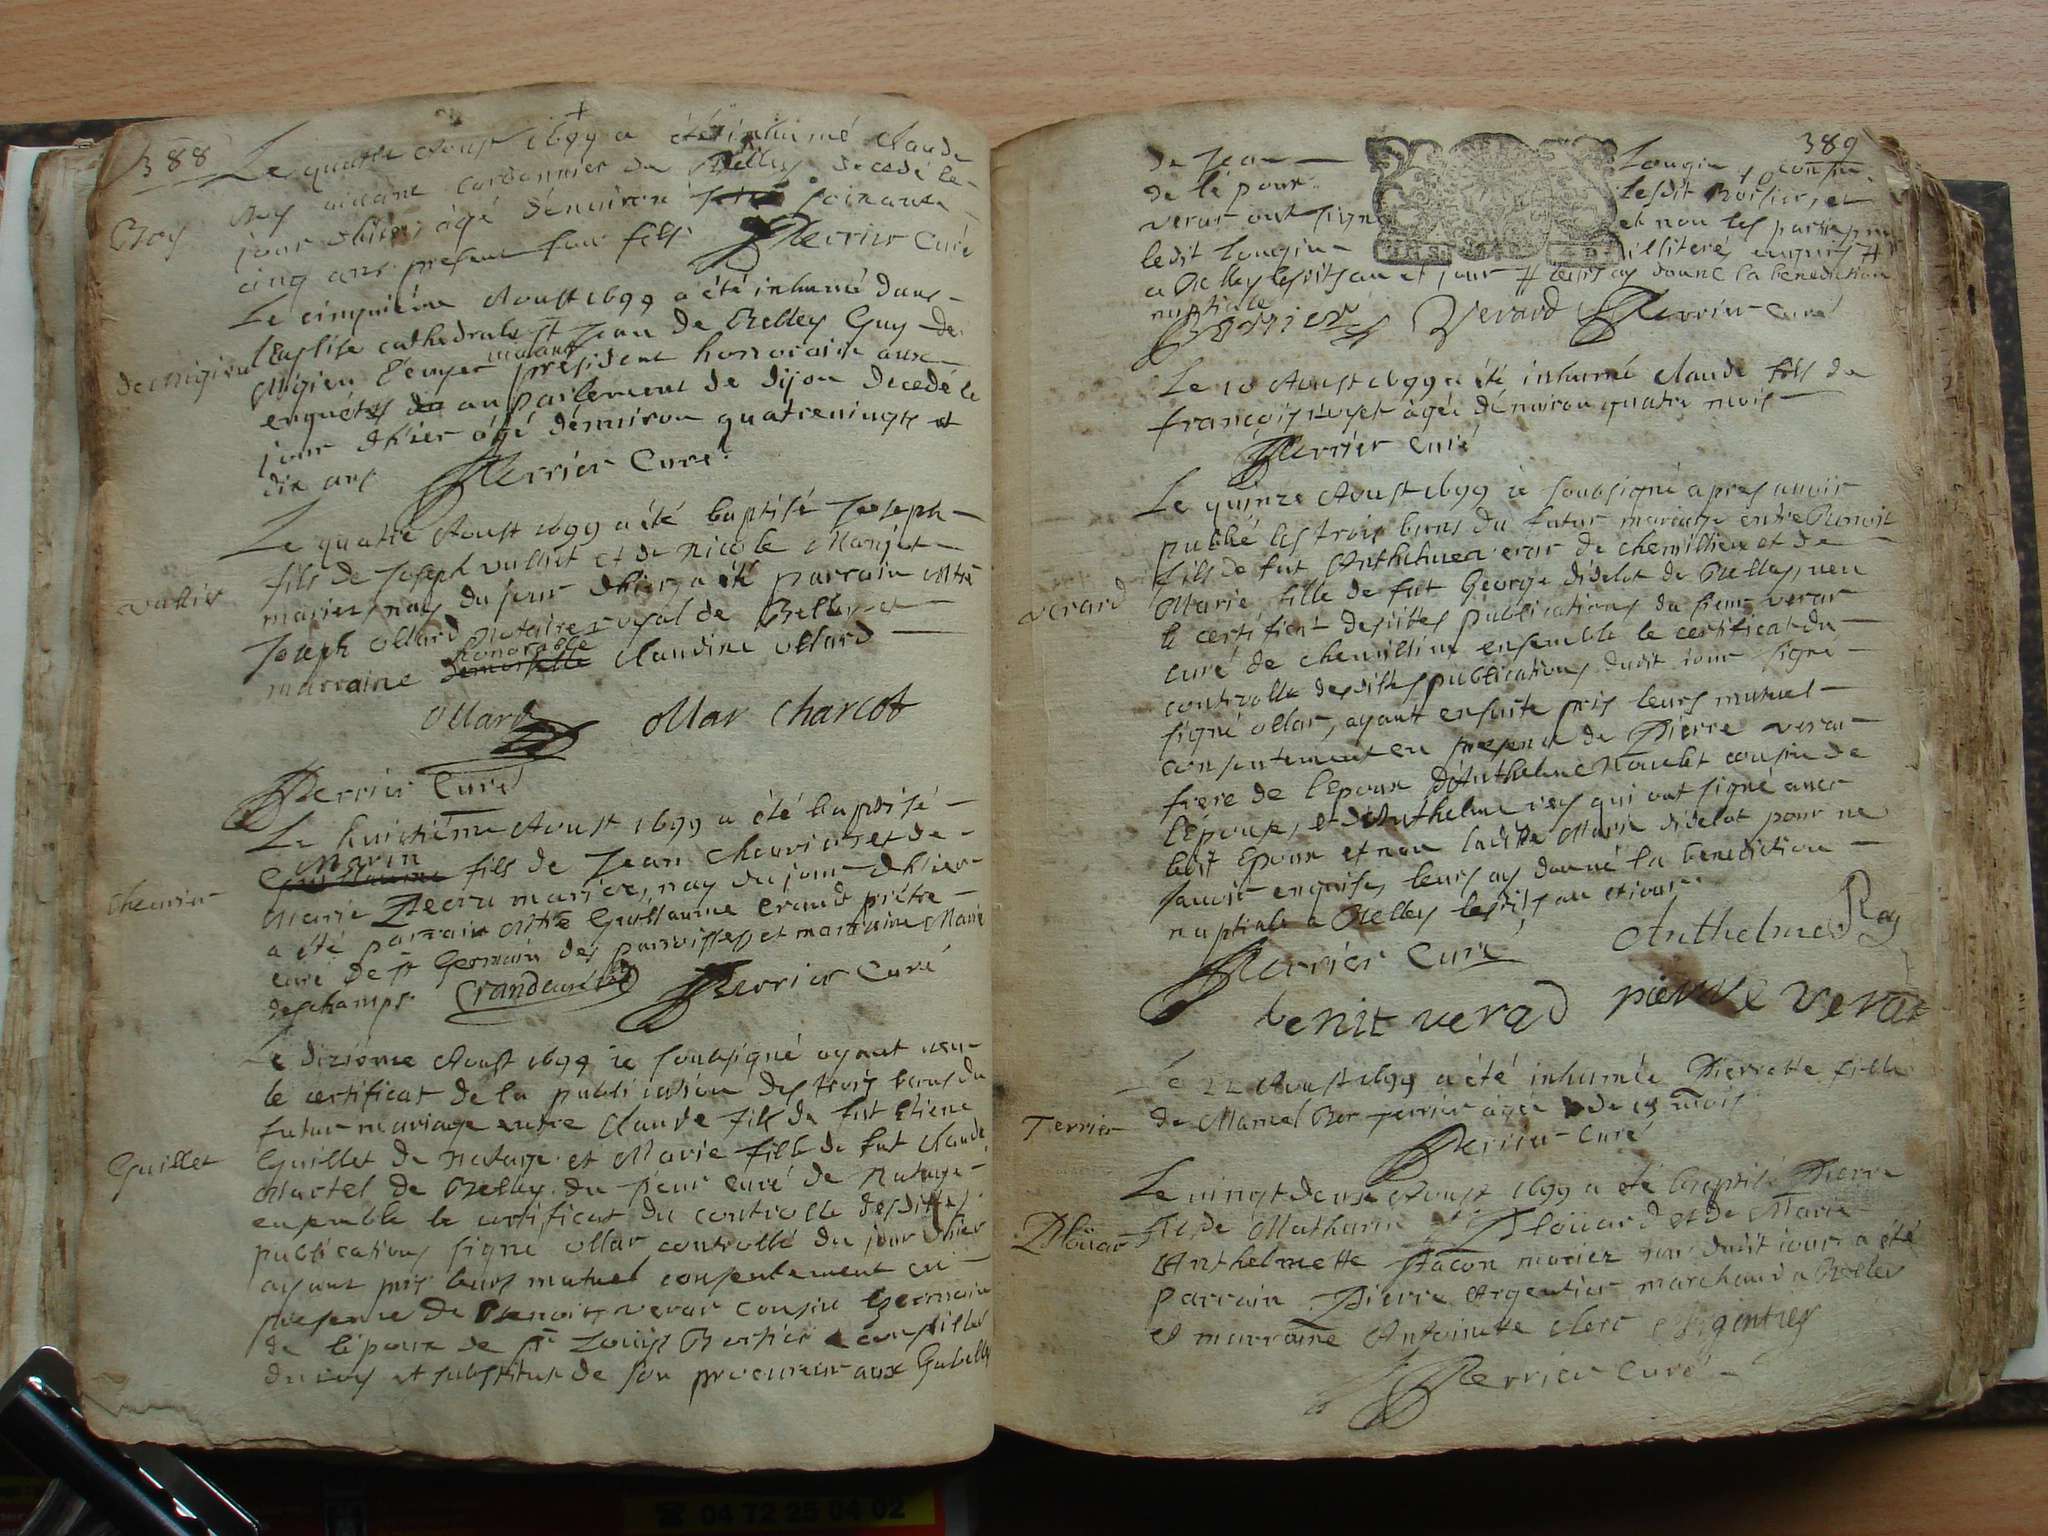 388
Le quatre Aoust 1699 a été inhumé Claude
Roy
Roy ancane cordonnier de Belley decedé le
jour d'hier, âgé d'environ soixante
cinq ans present son fils Perrier Curé
Le cinquième Aoust 1699 a été inhumé dans
l'Eglise cathedrale St Jean de Belley Guy de
de Migieu
Migieu Lemper vivant president honoraire aux
enquétes du au parlement de dijon decedé le
jour d'hier âgé d'environ quatrevingts et
dix ans Perrier Curé
Le quatre Aoust 1699 a été baptisé Joseph
fils de Joseph vulliet et de Nicole
vulliet
mariez, nay du jour d'hier, a été parrain Mtre
Joseph Ollard Notaire royal de Belley et
honorable
marraine demoiselle Claudine Ollard
Ollard Ollar Charcot
Perrier Curé
Le huictiéme Aoust 1699 a été baptisé
Marin
Guillaume fils de Jean Chevrier et de
chevrier
Marie Pecru mariez, nay du jour d'hier
a été parrain Mtre Guillaume Crand prêtre
curé de St Germain des parroisses et marraine Marie
deschamps. Crand curé Perrier Curé
Le dixiéme Aoust 1699 ie soubsigné ayant veu
le certificat de la publication des trois bans du
futur mariage entre Claude fils de fut Etiene
Guillet
Guillet de Nattage et Marie fille de fut Claude
Martel de Belley du sieur curé de Nattage
ensemble le certificat du controlle desdittes
publications signé Ollar controllé du jour d'hier
ayant pris leurs mutuel consentement en
presence de Benoist verar cousin Germain
de l'époux de Sr Louys Bossier conseiller
du roy et substitut de son procureur aux Gabelles
389
de Jean Longin cousin
de l'époux lesdit Bossier, et
verar ont signé et non les parties ny
ledit Longin illiteré enquis #
a Belley lesdits an et jour # leurs ay donné la benediction
nuptiale
Bossier Verard Perrier Curé
Le 10 Aoust 1699 a été inhumé Claude fils de
françois âgée d'environ quatre mois
Perrier Curé
Le quinze Aoust 1699 ie soubsigné apres avoir
publié les trois bans du futur mariage entre Benoit
fils de fut Anthelme verar de Chemillieu et de
verard
Marie fille de fut George didelot de Belley, veu
le certificat desdittes publications du sieur verar
curé de Chemillieu ensemble le certificat du
controlle desdittes publications dudit jour signé
signé Ollar, ayant ensuite pris leurs mutuel
consentement en presence de Pierre verar
frere de l'epoux d'Anthelme cousin de
l'épouse, et d'Anthelme rey qui ont signé avec
ledit Epoux et non laditte Marie didelot pour ne
savoir enquise, leurs ay donné la benediction
nuptiale a Belley lesdits an et jour
Perrier Curé Anthelme Rey
benit verad pierre verar
Le 22 Aoust 1699 a été inhumée Pierrette fille
Terrier
de Marcel Bor Terrier agée de mois
Perrier Curé
Le vingt deux Aoust 1699 a été baptisé Pierre
Ploüar
fils de Mathurin Ploüard et de Marie
Anthelmette Facon mariez nay dudit jour a été
parrain Pierre Argentier marchand a Belley
et marraine Antoinette Clerc Argentier
Perrier Curé
04 72 25 04 02